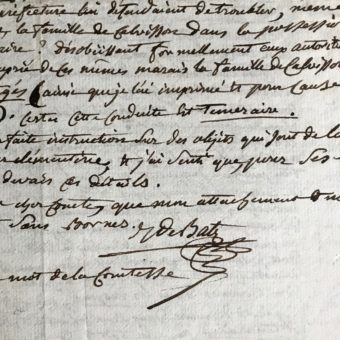 préfecture lui défendaient de troubler, même
la famille de Calvisson dans la possession
désobéissant formellement aux autorités
de ces mêmes marais la famille de Calvisson
ainsi que je lui imprimé et pour cause
certes cette conduite est temeraire.
faite instruction sur des objets qui sont de la
élémentaire, & j'ai senti que, pour ses
devais ces détails.
cher comte, que mon attachement &
sans bornes. de Batz
mot de la Comtesse